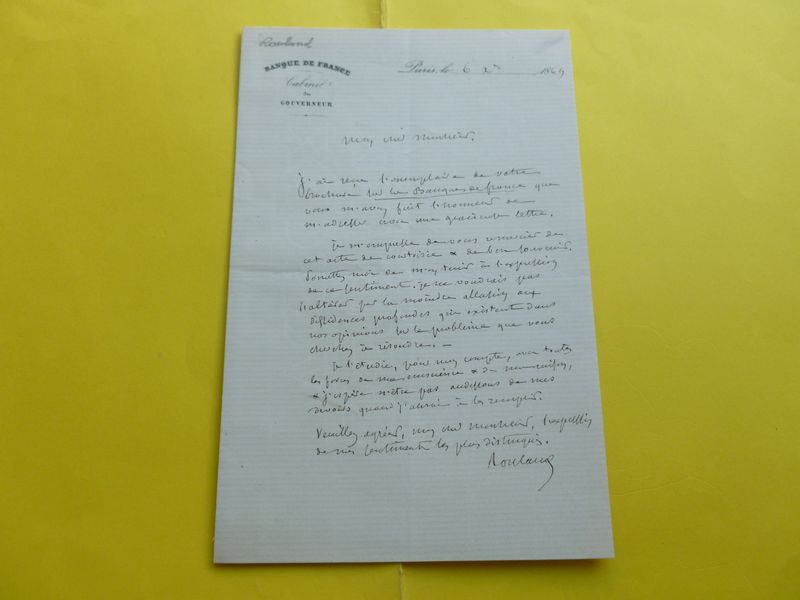 Rouland
BANQUE DE FRANCE
Cabinet
du
GOUVERNEUR
Paris, le 6 Xbre 1864
Mon cher Monsieur,
J'ai reçu l'exemplaire de votre
brochure sur les Banques de france que
vous m'avez fait l'honneur de
m'adresser avec une gracieuse lettre.
Je m'empresse de vous remercier de
cet acte de courtoisie & de bon souvenir.
Permettez moi de m'en tenir à l'expression
de ce sentiment. Je ne voudrais pas
l'altérer par la moindre allusion aux
dissidences profondes qui existent dans
nos opinions sur le problème que vous
cherchez à résoudre. —
Je l'étudie, pour mon compte, avec toutes
les forces de ma conscience & de ma raison,
& j'espère n'être pas au dessous de mes
devoirs quand j'aurai à les remplir.
Veuillez agréer, mon cher Monsieur, l'expression
de mes sentiments les plus distingués.
Rouland